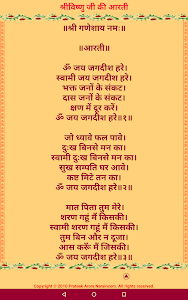 श्रीविष्णु जी की आरती
॥श्री गणेशाय नमः॥
॥आरती॥
ॐ जय जगदीश हरे।
स्वामी जय जगदीश हरे।
भक्त जनों के संकट।
दास जनों के संकट।
क्षण में दूर करें।
ॐ जय जगदीश हरे॥१॥
जो ध्यावे फल पावे।
दुःख बिनसे मन का।
स्वामी दुःख बिनसे मन का।
सुख सम्पति घर आवे।
कष्ट मिटे तन का।
ॐ जय जगदीश हरे॥२॥
मात पिता तुम मेरे।
शरण गहूं मैं किसकी।
स्वामी शरण गहूं मैं किसकी।
तुम बिन और न दूजा।
आस करूँ मैं जिसकी।
ॐ जय जगदीश हरे॥३॥
Copyright © 2010 Prateek Arora Nanakcorp. All rights reserved.